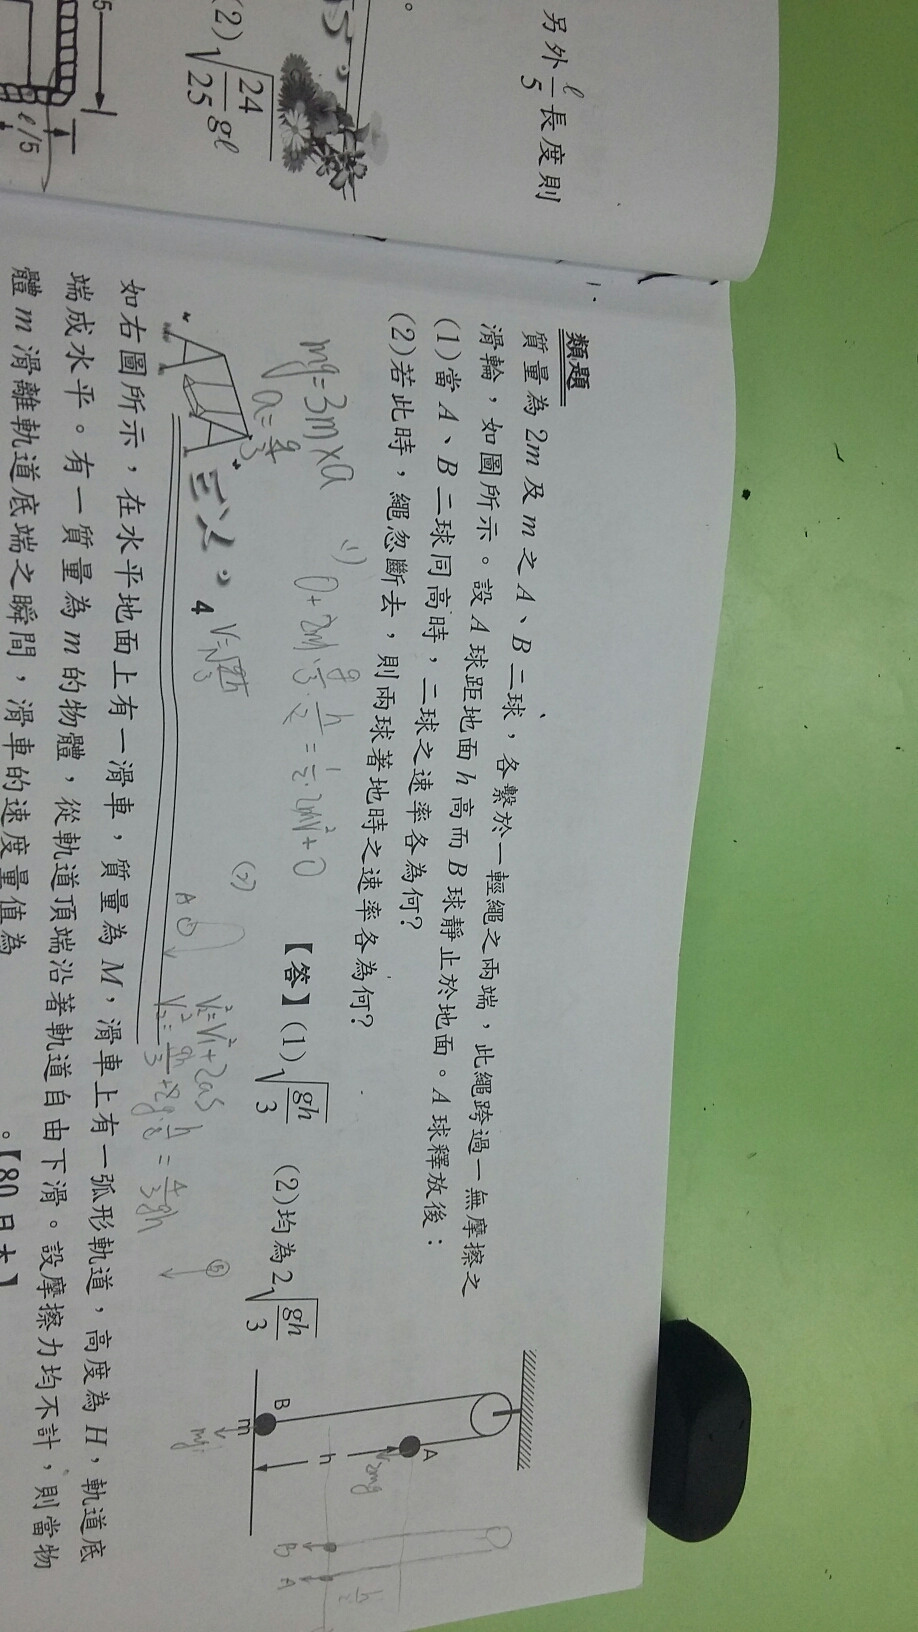 另外ℓ/5長度則
。
(2)√(24/25 gℓ)
5
ℓ/5
類題
質量為2m及m之A、B二球，各繫於一輕繩之兩端，此繩跨過一無摩擦之
滑輪，如圖所示。設A球距地面h高而B球靜止於地面。A球釋放後：
(1)當A、B二球同高時，二球之速率各為何？
(2)若此時，繩忽斷去，則兩球著地時之速率各為何？
【答】(1)√(gh/3) (2)均為2√(gh/3)
mg=3m×a
a=g/3
(1) 0+2m·g/3·h/2=1/2·2mV²+0
(2)
V₂²=V₁²+2as
V₂²=gh/3+2g·h/2=4/3gh
A
B
A
B
m
h
2mg
mg
B
A
h/2
4
如右圖所示，在水平地面上有一滑車，質量為M，滑車上有一弧形軌道，高度為H，軌道底
端成水平。有一質量為m的物體，從軌道頂端沿著軌道自由下滑。設摩擦力均不計，則當物
體m滑離軌道底端之瞬間，滑車的速度量值為
。【80日大】